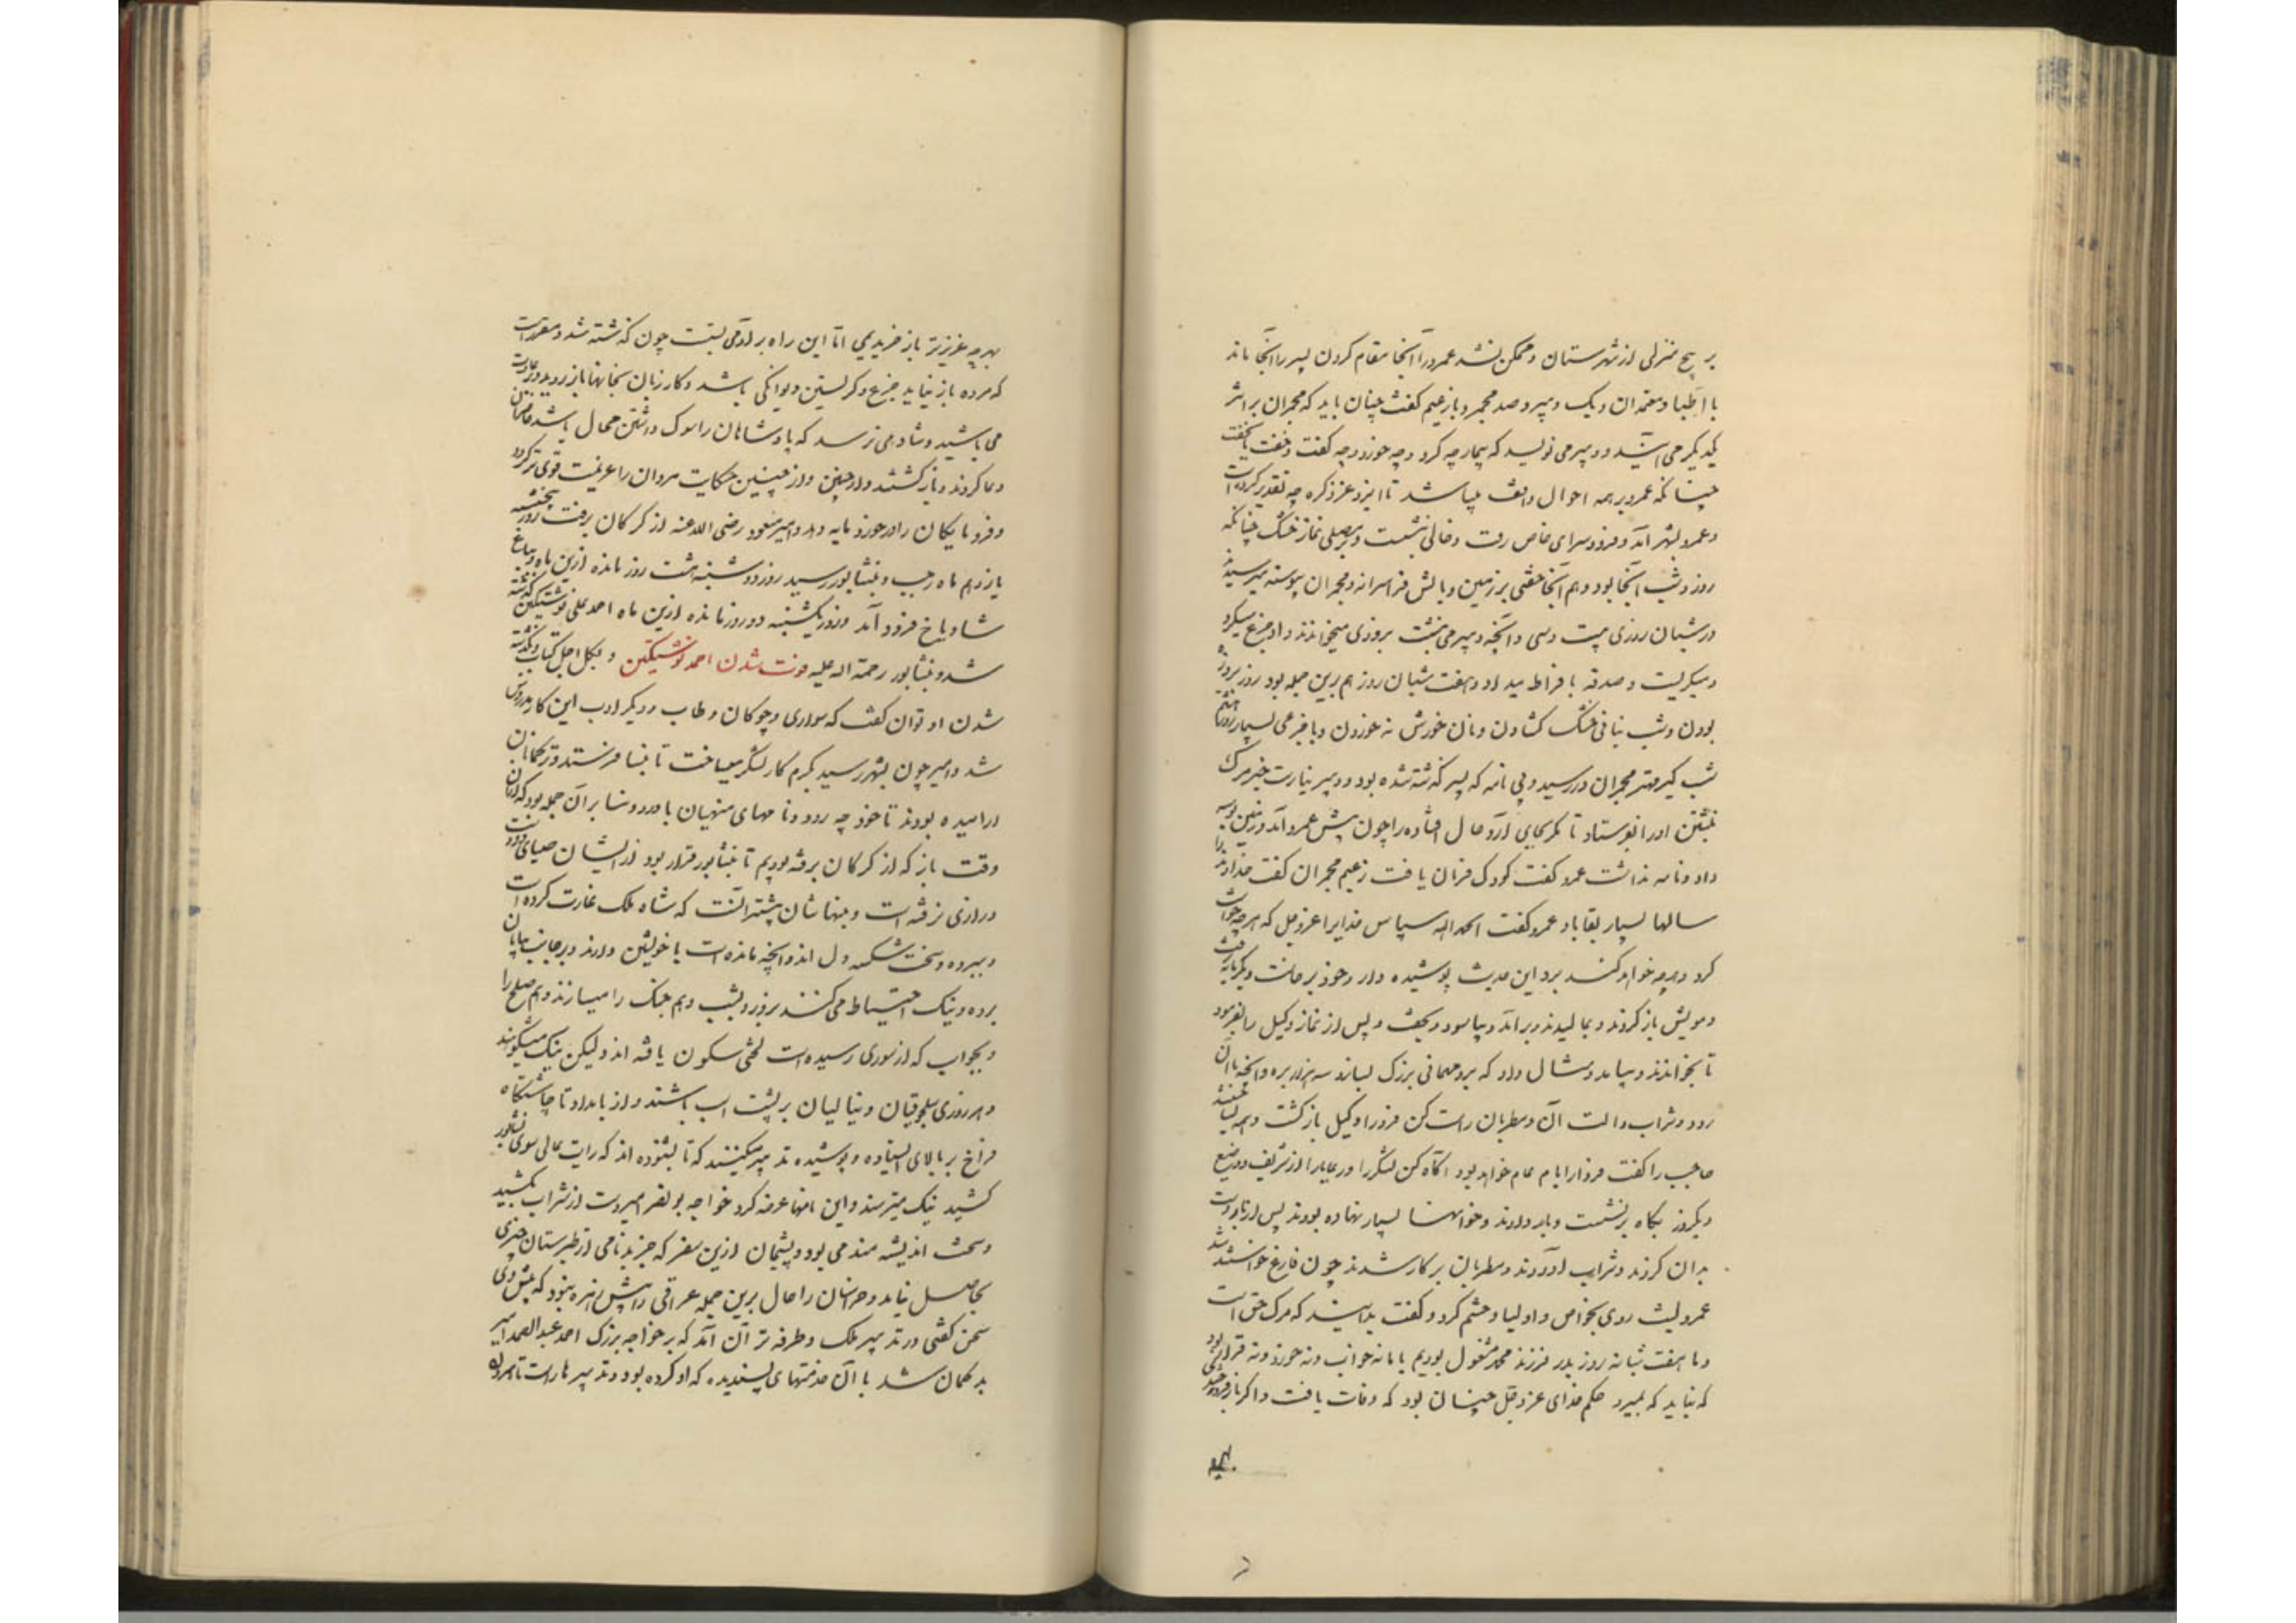 بر پنج منزلی از شهرستان و ممکن نشد عمرو را آنجا مقام کردن پسر را آنجا ماند
با اطبا و معتمدان و یک دبیر و صد مجمر و با زعیم گفت چنان باید که مجمران بر اثر
یکدیگر می آیند و دبیر می نویسد که بیمار چه کرد و چه خورد و چه گفت و خفت یا نخفت
چنانکه عمرو بر همه احوال واقف میباشد تا ایزد عز ذکره چه تقدیر کرده است
و عمرو بشهر آمد و فرود سرای خاص رفت و خالی نشست و بر مصلی نماز خشک چنانکه
روز و شب آنجا بود و هم آنجا خفتی بر زمین و بالش فرا سر نه و مجمران پیوسته میرسیدند
در شبان روزی بیست و سی و آنچه دبیر می نبشت بروی میخواندند و او جزع میکرد
و میگریست و صدقه بافراط میداد و هفت شبان روز هم برین جمله بود روز بروزه
بودن و شب بنانی خشک گشادن و نان خورش نه خوردن و با جزعی بسیار روز هشتم
شب گیر مهتر مجمران در رسید و بی نامه که پسر گذشته شده بود و دبیر نیارست خبر مرگ
نبشتن او را بفرستاد تا مگر بجای آرد حال افتاده را چون پیش عمرو آمد و زمین بوسه
داد و نامه نداشت عمرو گفت کودک فرمان یافت زعیم مجمران گفت خداوند را
سالها بسیار بقا باد عمرو گفت الحمد الله سپاس خدایرا عز و جل که هر چه خواست
کرد و هر چه خواهد کند برو این حدیث پوشیده دار و خود برخاست و بگرمابه رفت
و مویش باز کردند و بمالیدند و برآمد و بیاسود و بخفت و پس از نماز وکیل را بفرمود
تا بخواندند و بیامد و مثال داد که برو مهمانی بزرگ بساز و سه هزار بره و آنچه با آن
رود و شراب و الت آن و مطربان راست کن فردا را وکیل بازگشت و همه بساختند
حاجب را گفت فردا بار عام خواهد بود آگاه کن لشکر را و رعایا را از شریف و وضیع
دیگر روز پگاه بر نشست و بار دادند و خوانها بسیار نهاده بودند پس از بار دست
بدان کردند و شراب آوردند و مطربان بر کار شدند چون فارغ خواستند شد
عمرو لیث روی بخواص و اولیا و حشم کرد و گفت بدانید که مرگ حق است
و ما هفت شبانه روز بدرد فرزند محمد مشغول بودیم با ما نه خواب و نه خورد و نه قرار بود
که نباید که بمیرد حکم خدای عز و جل چنان بود که وفات یافت و اگر باز فروختندی
بهر چه عزیزتر باز خریدیمی اما این راه بر آدمی بسته است چون گذشته شد و مقرر است
که مرده باز نیاید جزع و گریستن دیوانگی باشد و کار زنان بخانها باز روید و بر عادت
می باشید و شاد می زیید که پادشاهان را سوک داشتن محال باشد حاضران
دعا کردند و بازگشتند و از چنین حکایت مردان را عزیمت قوی تر گردد
و فرومایگان را در خورد مایه دهد و امیر مسعود رضی الله عنه از گرگان برفت روز پنجشنبه
یازدهم ماه رجب و بنشابور رسید روز دوشنبه هشت روز مانده ازین ماه و بباغ
شادیاخ فرود آمد و روز یکشنبه دو روز مانده ازین ماه احمد علی نوشتگین گذشته
شد و بنشابور رحمة الله علیه فوت شدن احمد نوشتگین و لکل اجل کتاب و بگذشته
شدن او توان گفت که سواری و چوگان و طاب و دیگر ادب این کار مدروس
شد و امیر چون بشهر رسید بگرم کار لشکر میساخت تا بنسا فرستد و ترکمانان
آرامیده بودند تا خود چه رود و نامهای منهیان باورد و نسا برآن جمله بود که از آن
وقت باز که از گرگان برفته بودیم تا بنشابور قرار بود از ایشان
درازی نرفته است و بنهاشان بیشتر آنست که شاه ملک غارت کرده است
و ببرده و سخت شکسته دل اند و آنچه مانده است با خویشتن دارند و بر جانب بیابان
برده و نیک احتیاط می کنند بروز و بشب و هم جنگ را میسازند و هم صلح را
و بجواب که از سوری رسیده است لختی سکون یافته اند ولیکن نیک میشکوهند
و هر روزی سلجوقیان و نیالیان بر پشت اسب باشند و از بامداد تا چاشتگاه
فراخ بر بالای ایستاده و پوشیده تدبیر میکنند که تا بشنوده اند که رایت عالی سوی نشابور
کشید نیک میترسند و این نامها عرضه کرد خواجه بونصر امیر دست از شراب بکشید
و سخت اندیشه مند می بود و پشیمان ازین سفر که جز بدنامی از طبرستان چیزی
بحاصل نیامد و خراسان را حال برین جمله عراقی را بیش زهره نبود که پیش وی
سخن گفتی در تدبیر ملک و طرفه تر آن آمد که بر خواجه بزرگ احمد عبدالصمد امیر
بد گمان شد با آن خدمتهای پسندیده که او کرده بود و تدبیرها راست تا هرون